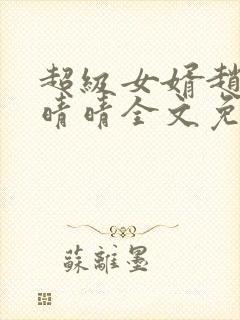 超級女婿趙
晴晴全文免
蘇離墨